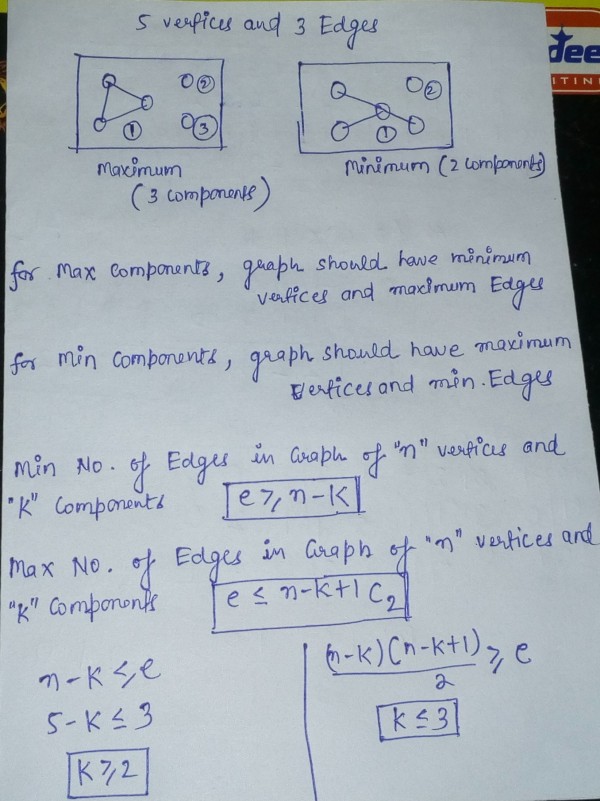 5 vertices and 3 Edges
dee
ITIN
② ③ ①
② ①
Maximum
(3 components)
Minimum (2 components)
for Max Components, graph should have minimum
vertices and maximum Edges
for Min Components, graph should have maximum
Vertices and min. Edges
Min No. of Edges in Graph of "n" vertices and
"K" Components e ≥ n-k
Max No. of Edges in Graph of "n" vertices and
"K" Components e ≤ n-k+1 C₂
n-k ≤ e
5-k ≤ 3
K ≥ 2
(n-k)(n-k+1)/2 ≥ e
k ≤ 3